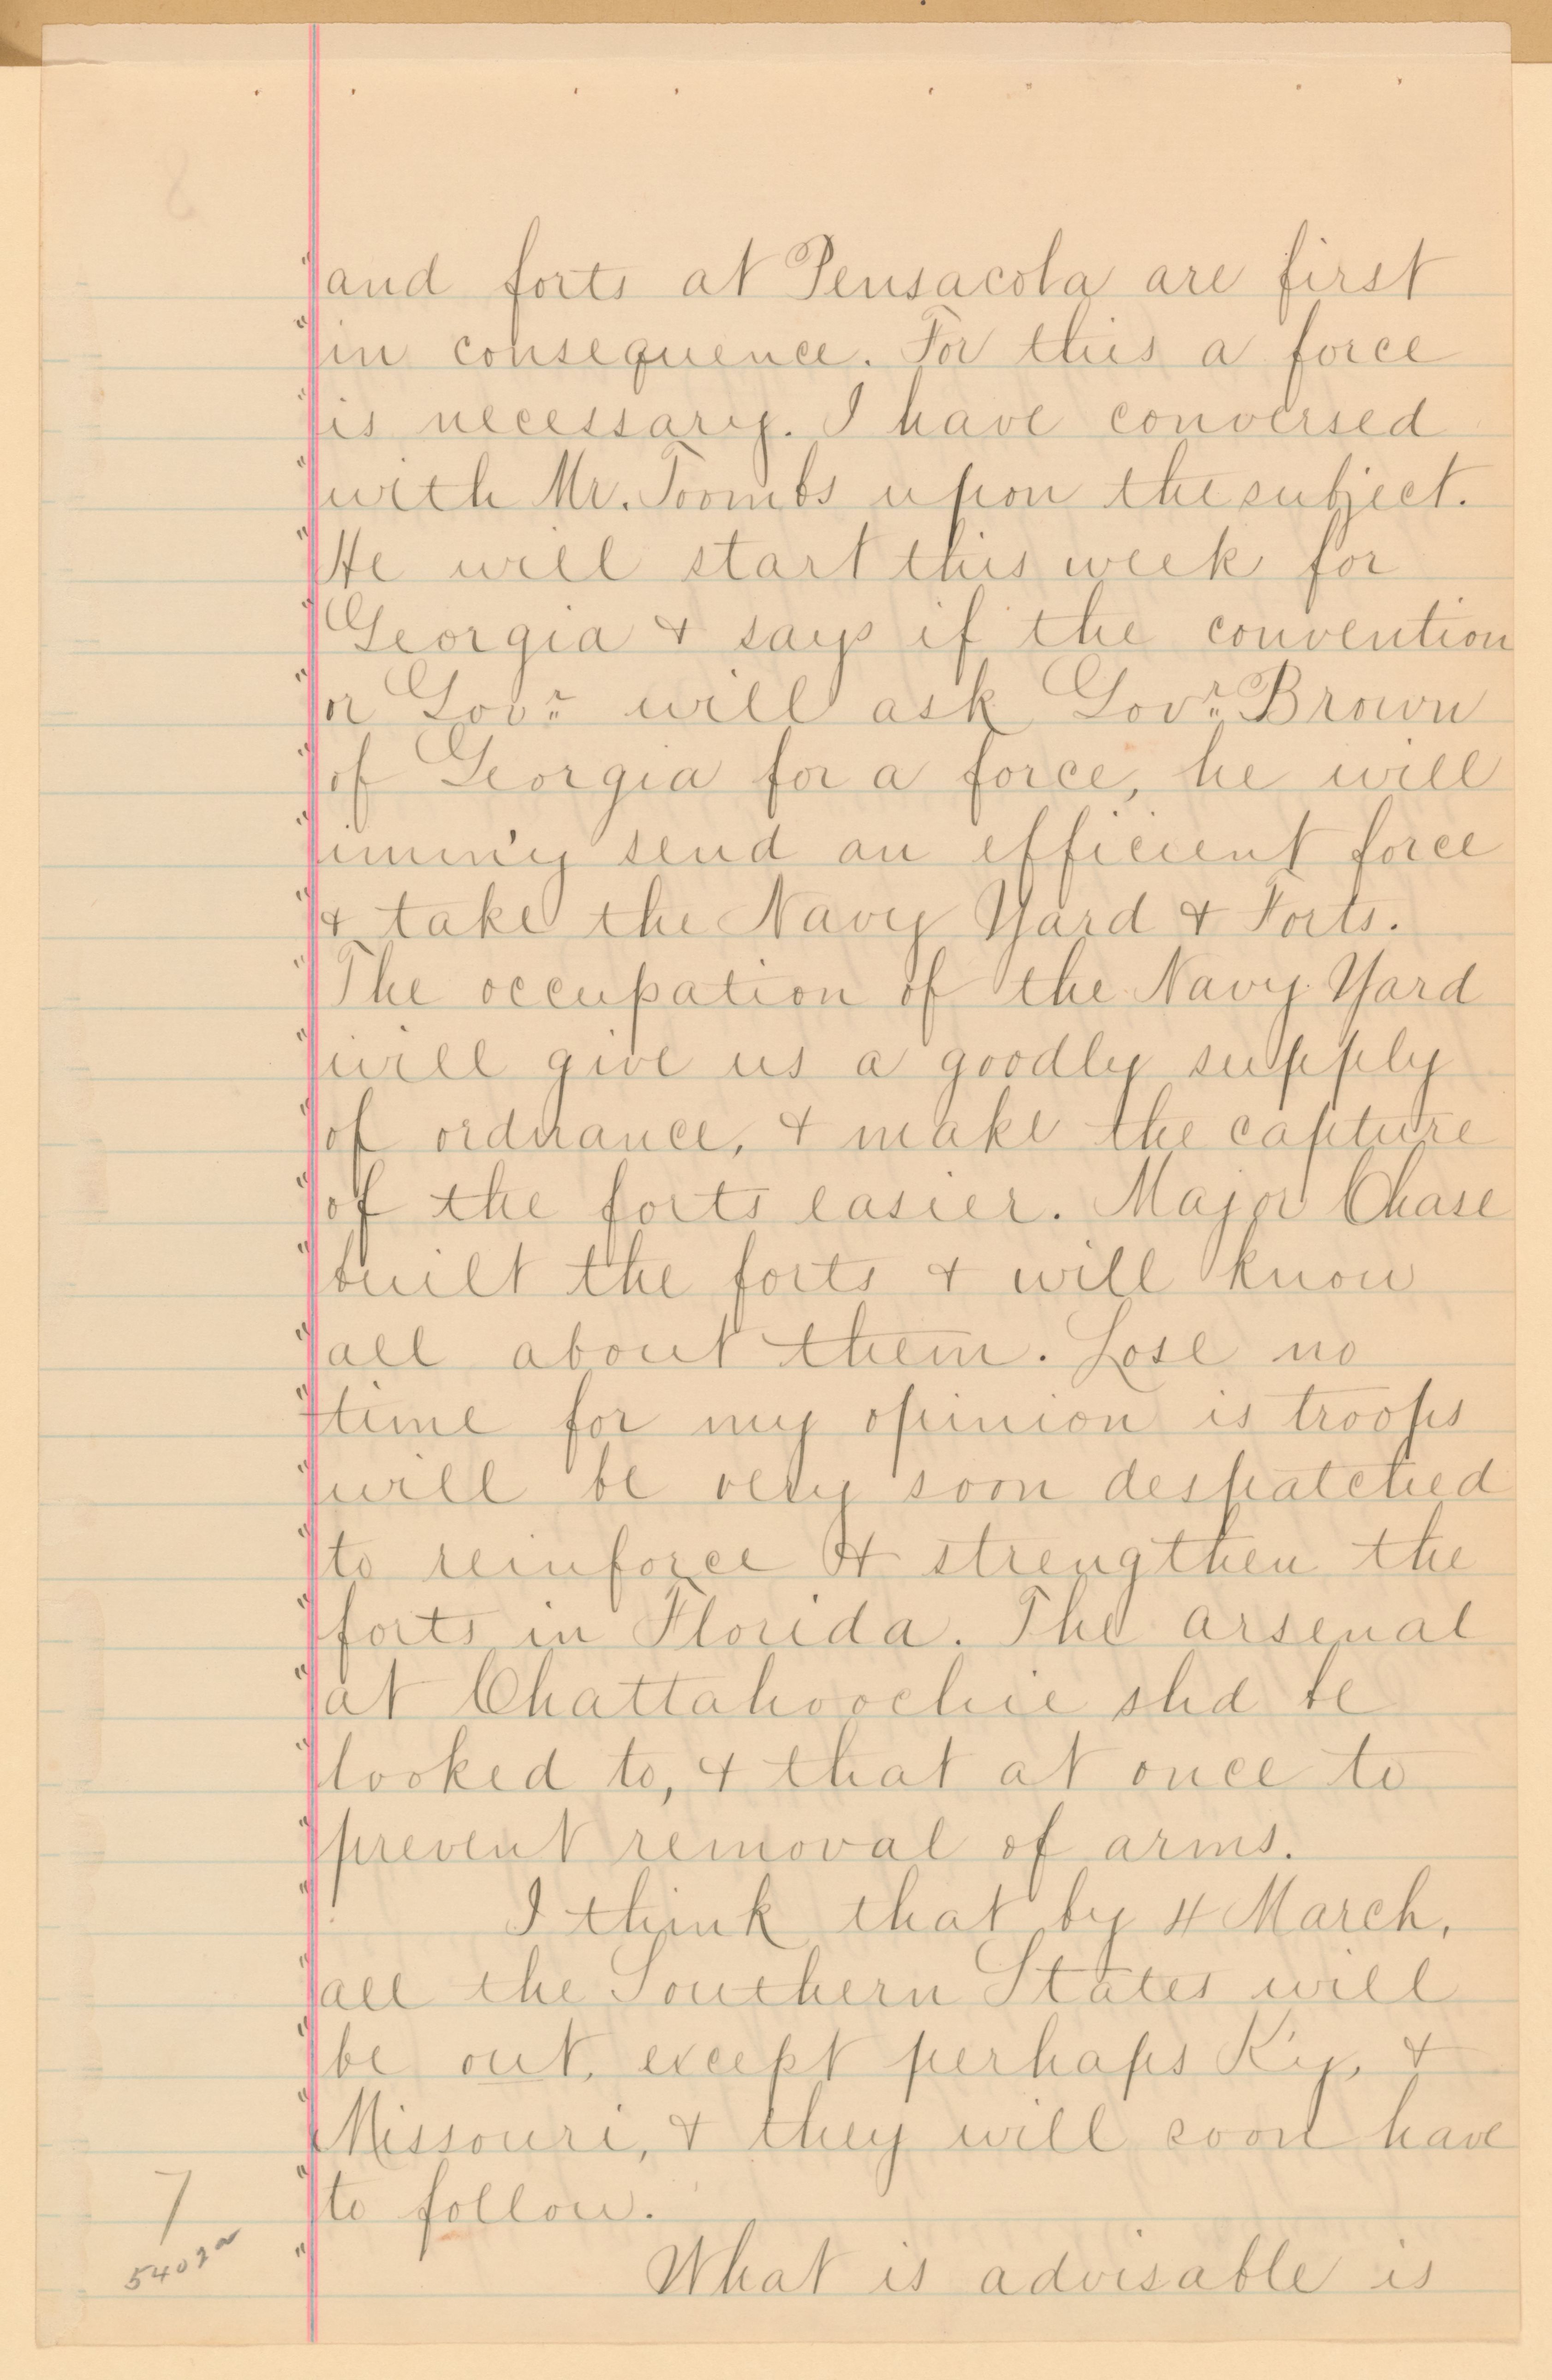 " and forts at Pensacola are first
" in consequence. For this a force
" is necessary. I have conversed
" with Mr. Toombs upon the subject.
" He will start this week for
" Georgia & says if the convention
" or Govr. will ask Govr. Brown
" of Georgia for a force, he will
" imm'y send an efficient force
" & take the Navy Yard & Forts.
" The occupation of the Navy Yard
" will give us a goodly supply
" of ordnance, & make the capture
" of the forts easier. Major Chase
" built the forts & will know
" all about them. Lose no
" time for my opinion is troops
" will be very soon despatched
" to reinforce & strengthen the
" forts in Florida. The arsenal
" at Chattahoochie shd be
" looked to, & that at once to
" prevent removal of arms.
" I think that by 4 March,
" all the Southern States will
" be out, except perhaps K'y, &
" Missouri, & they will soon have
" to follow.
" What is advisable is
7